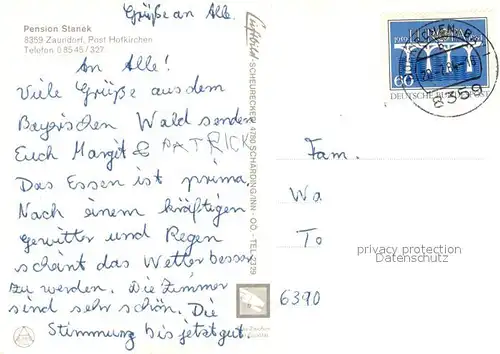 Grüße an Alle.
Pension Stanek
8359 Zaundorf, Post Hofkirchen
Telefon 0 85 45 / 327
An Alle!
Viele Grüße aus dem
Bayerischen Wald senden
Euch Margit & PATRICK
Das Essen ist prima.
Nach einem kräftigen
Gewitter und Regen
scheint das Wetter besser
zu werden. Die Zimmer
sind sehr schön. Die
Stimmung bis jetzt gut.
Luftbild
SCHEURECKER 4780 SCHÄRDING/INN - OÖ. - TEL.
60
DEUTSCHE BUNDESPOST
8359
Fam.
Wa
To
privacy protection
Datenschutz
6390